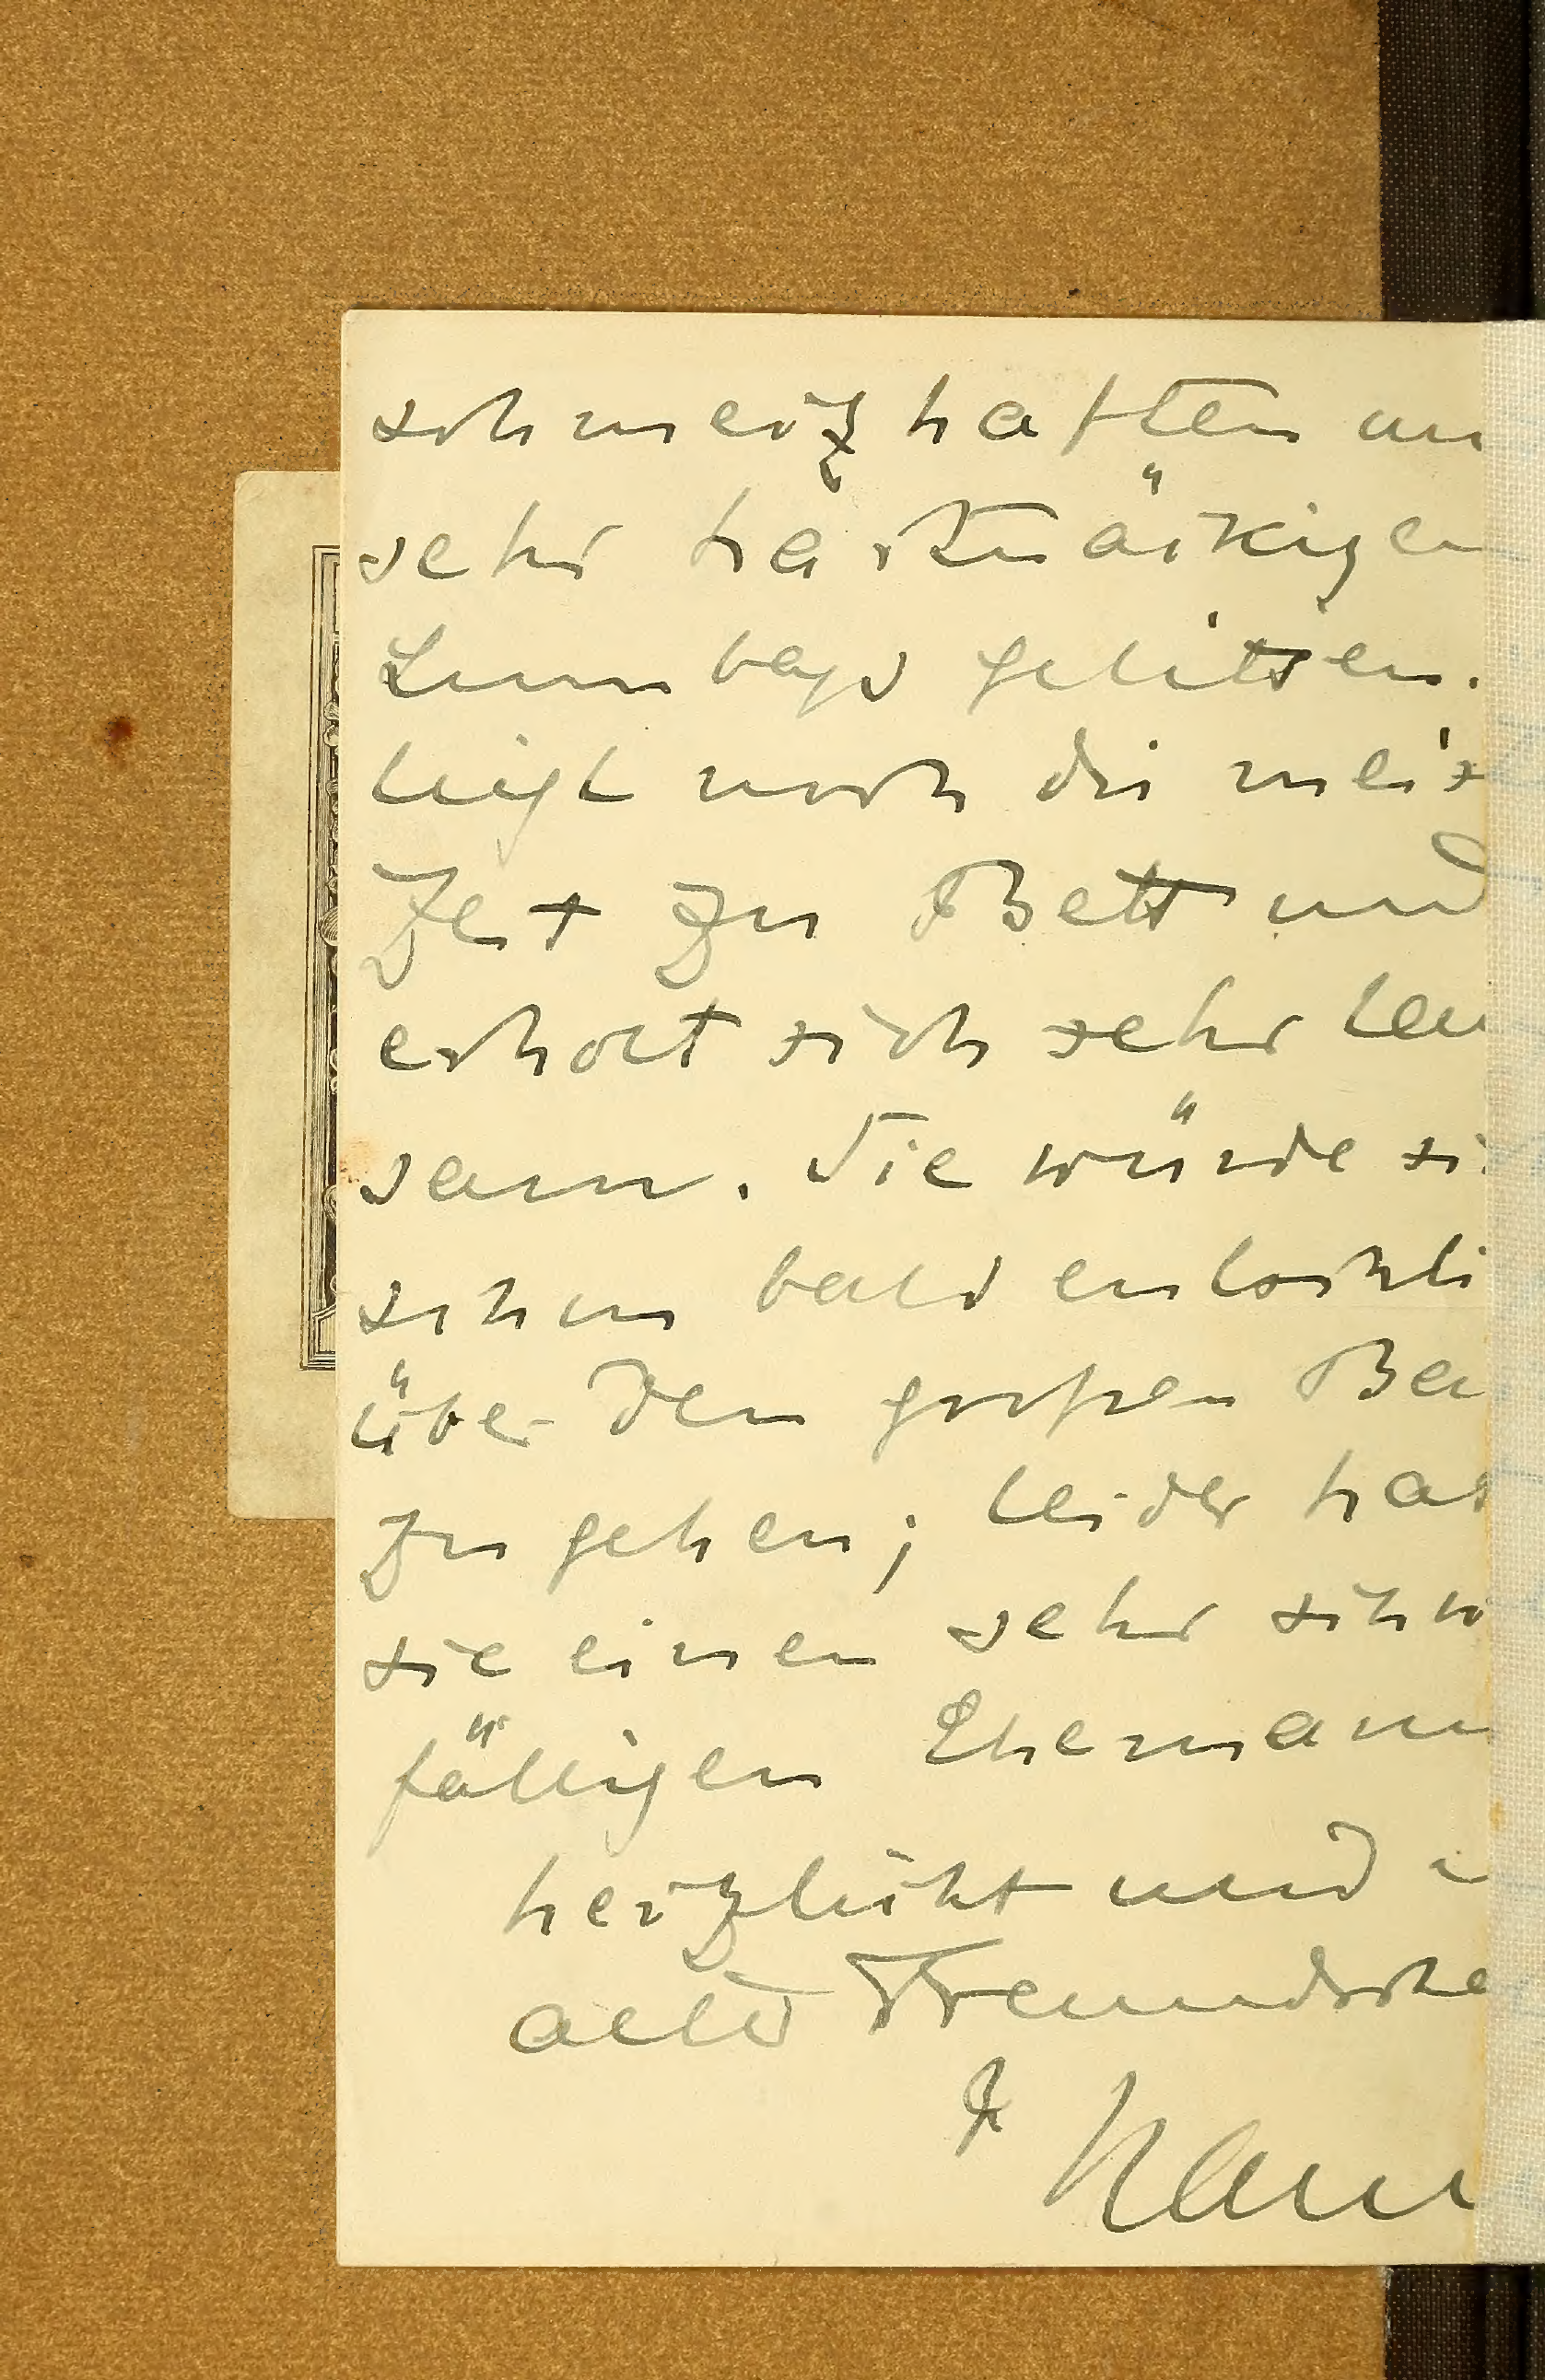 schmerzhaften un
sehr hartnäckigen
Lumbago gelitten.
liegt noch die meis
Zeit zu Bett und
erholt sich sehr lan
sam. Sie würde si
schon bald entschli
über den großen Ba
zu gehen; leider hat
sie einen sehr schw
fälligen Ehemann
herzlichst und i
alter Freundscha